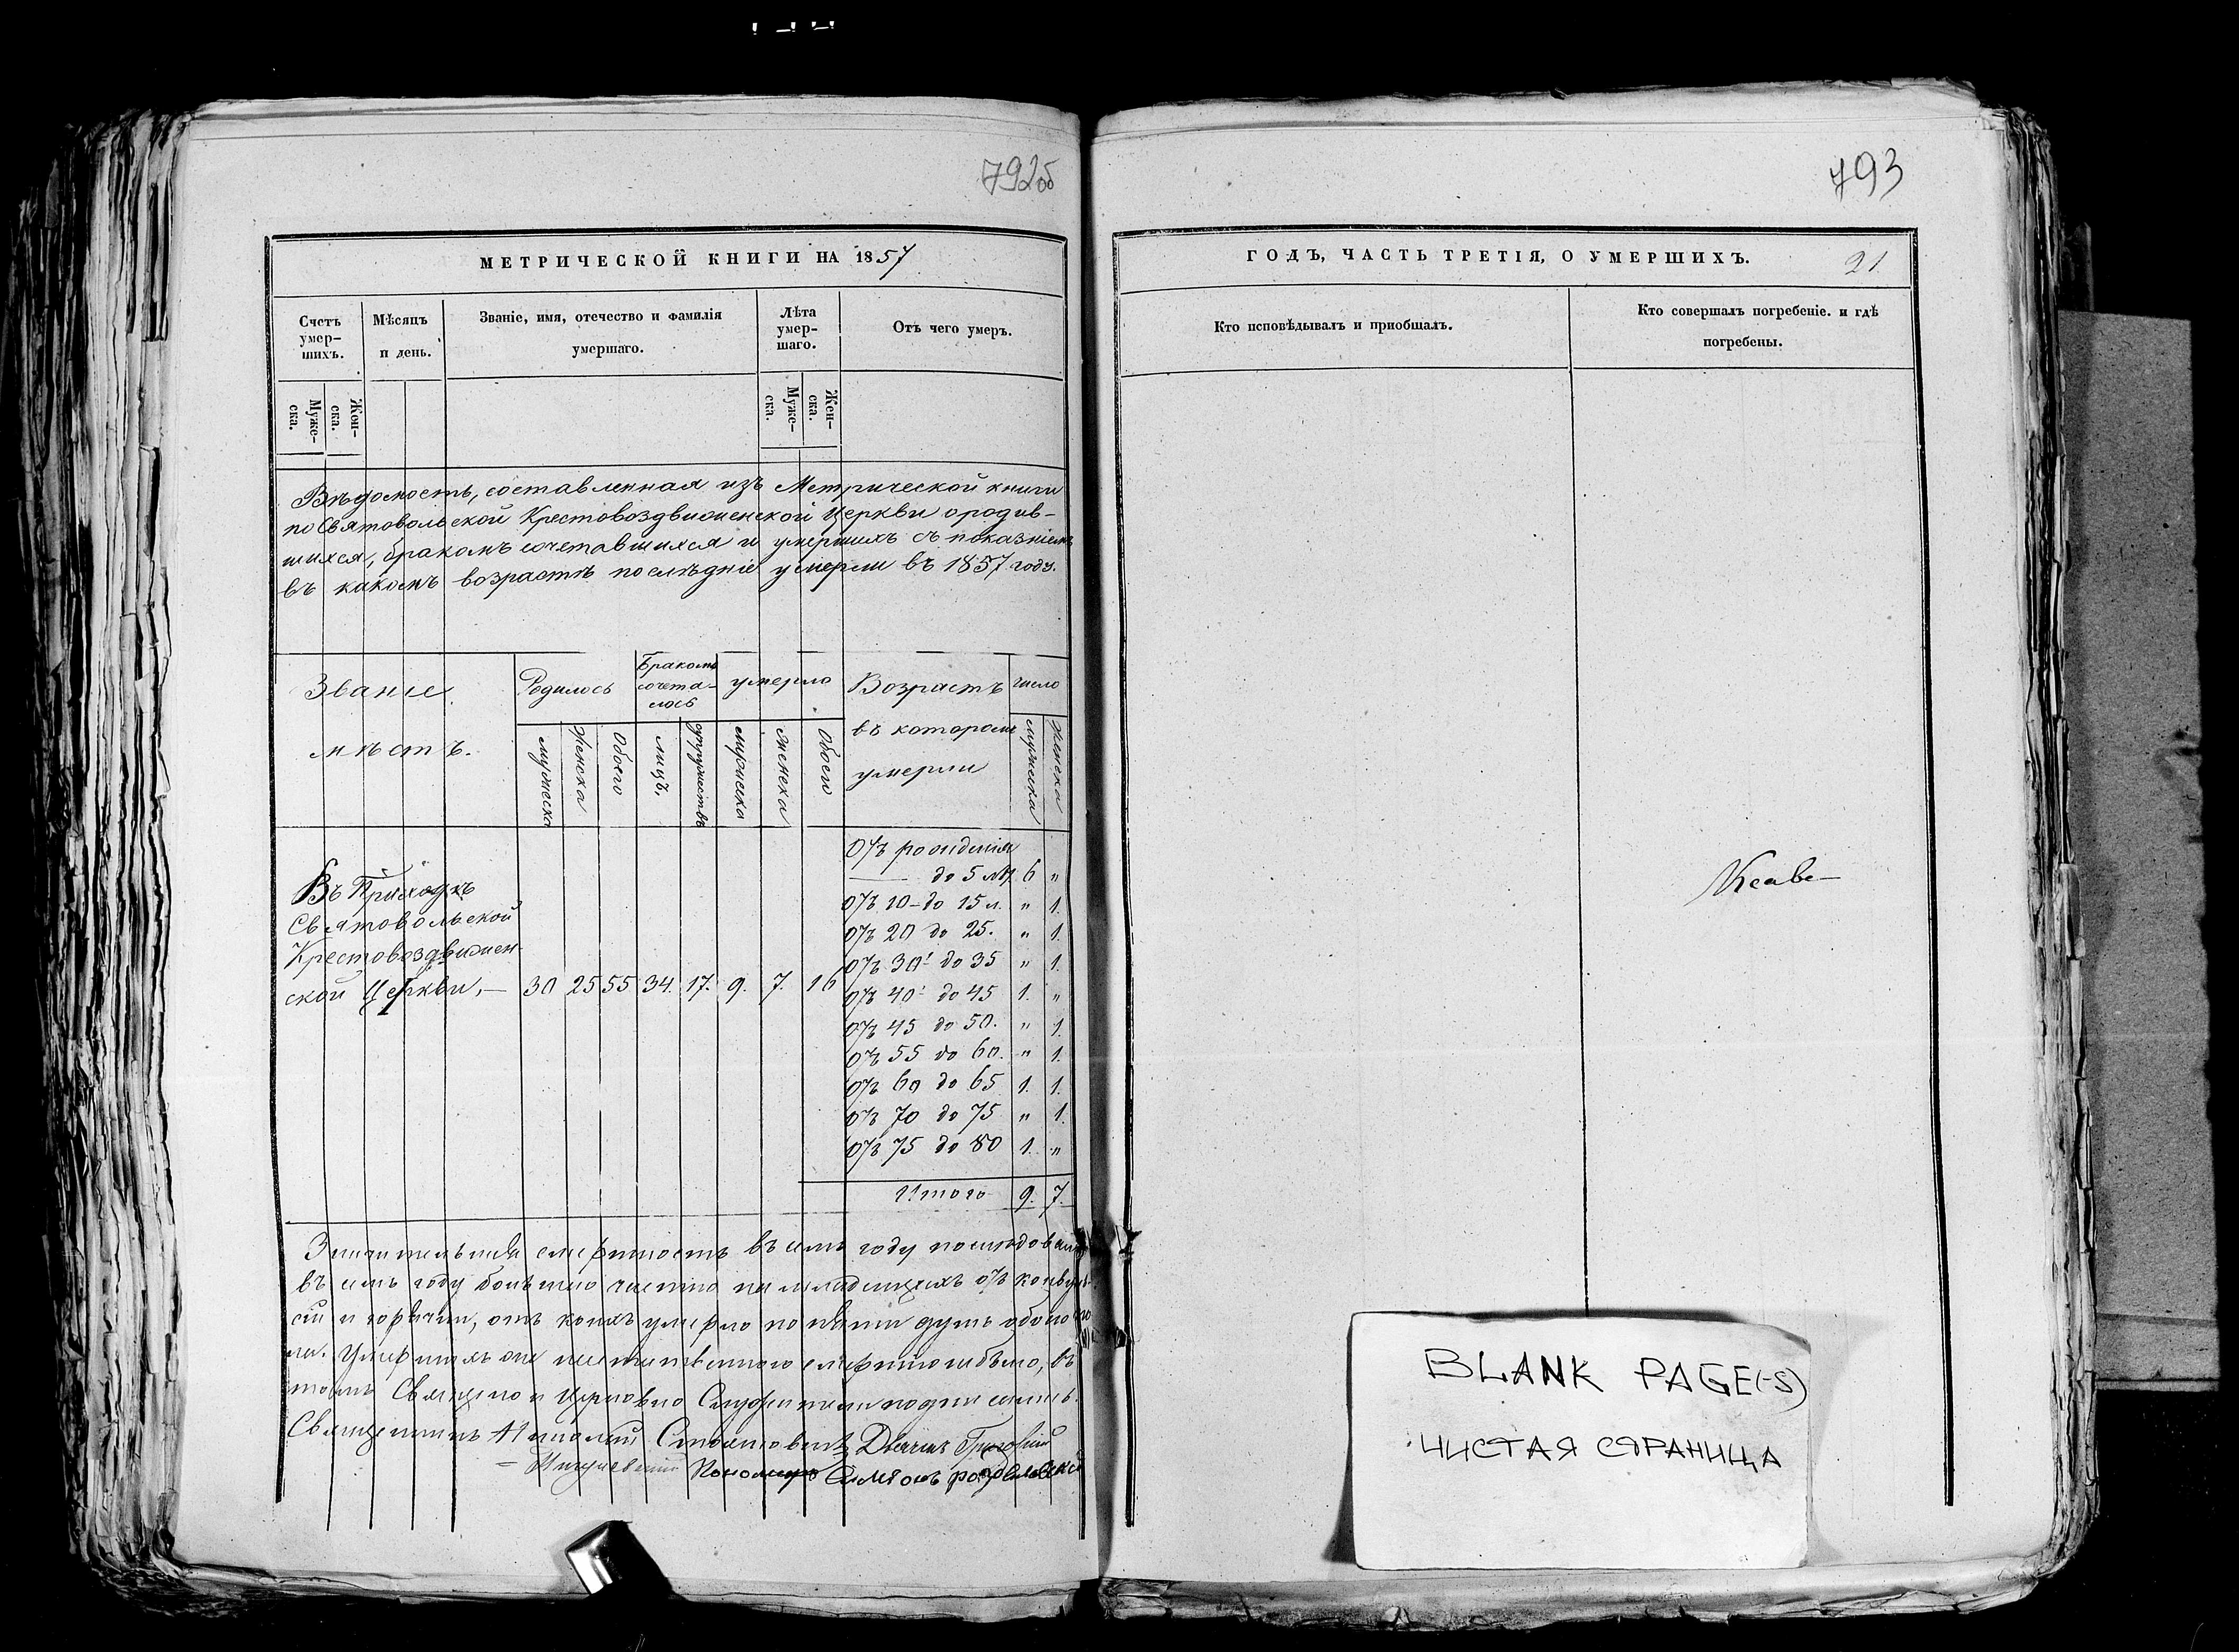 792об
МЕТРИЧЕСКОЙ КНИГИ НА 1857
Счетъ умер-шихъ.
Мѣсяцъ и день.
Званіе, имя, отечество и фамилія умершаго.
Лѣта умер-шаго.
Отъ чего умеръ.
Муже-ска.
Жен-ска.
Муже-ска.
Жен-ска.
Вѣдомость, составленная изъ Метрической книги
по Святовольской Крестовоздвиженской Церкви о родив-
шихся, бракомъ сочетавшихся и умершихъ съ показніемъ
въ какомъ возрастѣ послѣдніе умерли въ 1857 году.
Званіе мѣстъ.
Родилось
Бракомъ сочета-лось
умерло
Возрастъ въ которомъ умерли
число
мужеска
женска
Обоего
лицъ.
супружествъ
мужеска
женска
Обоего
мужеска
женска
Въ Приходѣ
Святовольской
Крестовоздвижен-
ской Церкви,— 30 25 55 34. 17. 9. 7. 16
Отъ рожденія
до 5 лѣт. 6 „
Отъ 10 - до 15 л. „ 1.
Отъ 20 до 25. „ 1.
Отъ 30 до 35 „ 1.
Отъ 40 до 45 1. „
Отъ 45 до 50. „ 1.
Отъ 55 до 60. „ 1.
Отъ 60 до 65 1. 1.
Отъ 70 до 75 „ 1.
Отъ 75 до 80 1. „
Итого 9. 7.
Значительная смертность въ семъ году последовала
въ семъ году большею частію на младенцахъ отъ конвуль-
сіи и горячки, отъ коихъ умерло по пяти душъ обоего
Умершихъ неестественною смертію небыло, въ
томъ Священно и Церковно Служители подписались.
Священникъ Дьячекъ Григорій
Пономарь Симеонъ
793
ГОДЪ, ЧАСТЬ ТРЕТІЯ, О УМЕРШИХЪ.
21
Кто исповѣдывалъ и пріобщалъ.
Кто совершалъ погребеніе. и гдѣ погребены.
BLANK PAGE(-S)
ЧИСТАЯ СТРАНИЦА